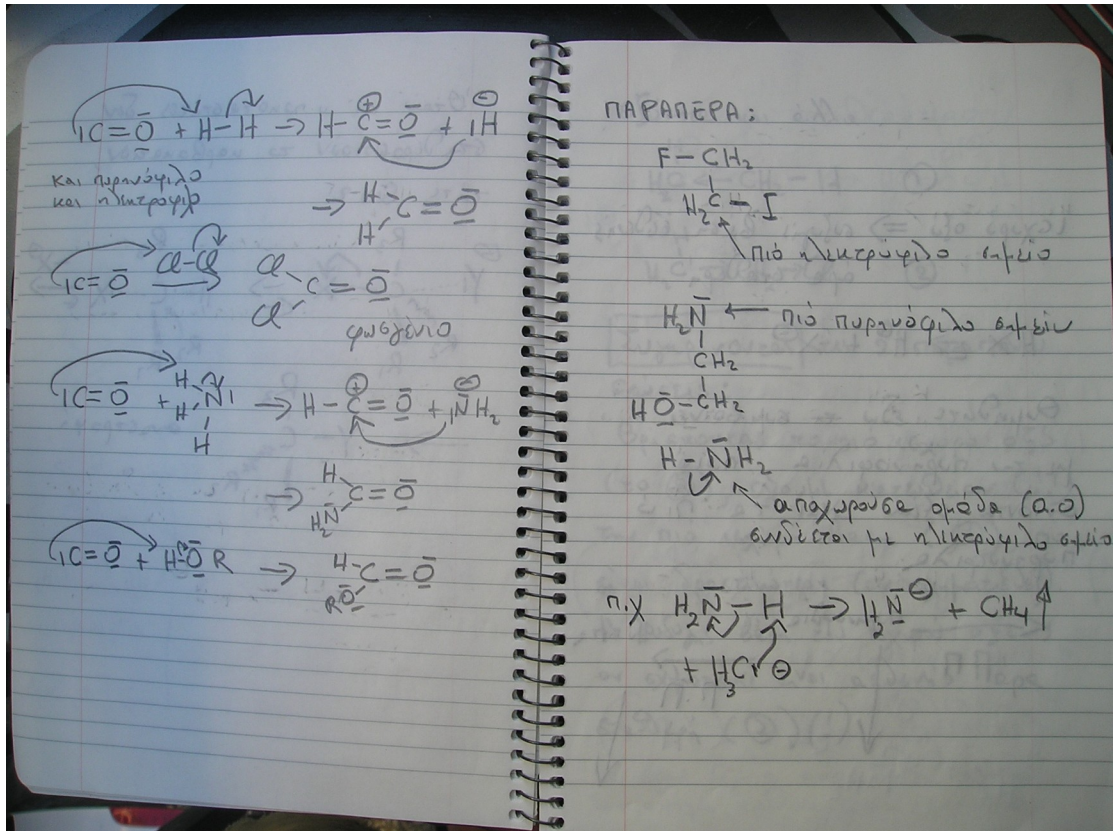 |C=O̅ + H-H → H-C⊕=O̅ + |H⊖
και πυρηνόφιλο
και ηλεκτρόφιλο
→ H
C=O̅
H
|C=O̅ Cl-Cl → Cl
C=O̅
Cl
φωσγένιο
|C=O̅ + H
H-N|
H
→ H-C⊕=O̅ + |N̅H₂⊖
→ H
C=O̅
H₂N̅
|C=O̅ + H-O̅R → H-C=O̅
RO̅
ΠΑΡΑΠΕΡΑ:
F-CH₂
H₂C-I
πιό ηλεκτρόφιλο σημείο
H₂N̅ ← πιό πυρηνόφιλο σημείο
CH₂
HO̅-CH₂
H-N̅H₂
αποχωρούσα ομάδα (α.ο)
συνδέεται με ηλεκτρόφιλο σημείο
π.χ H₂N̅-H → H₂N̅⊖ + CH₄↑
+ H₃C|⊖